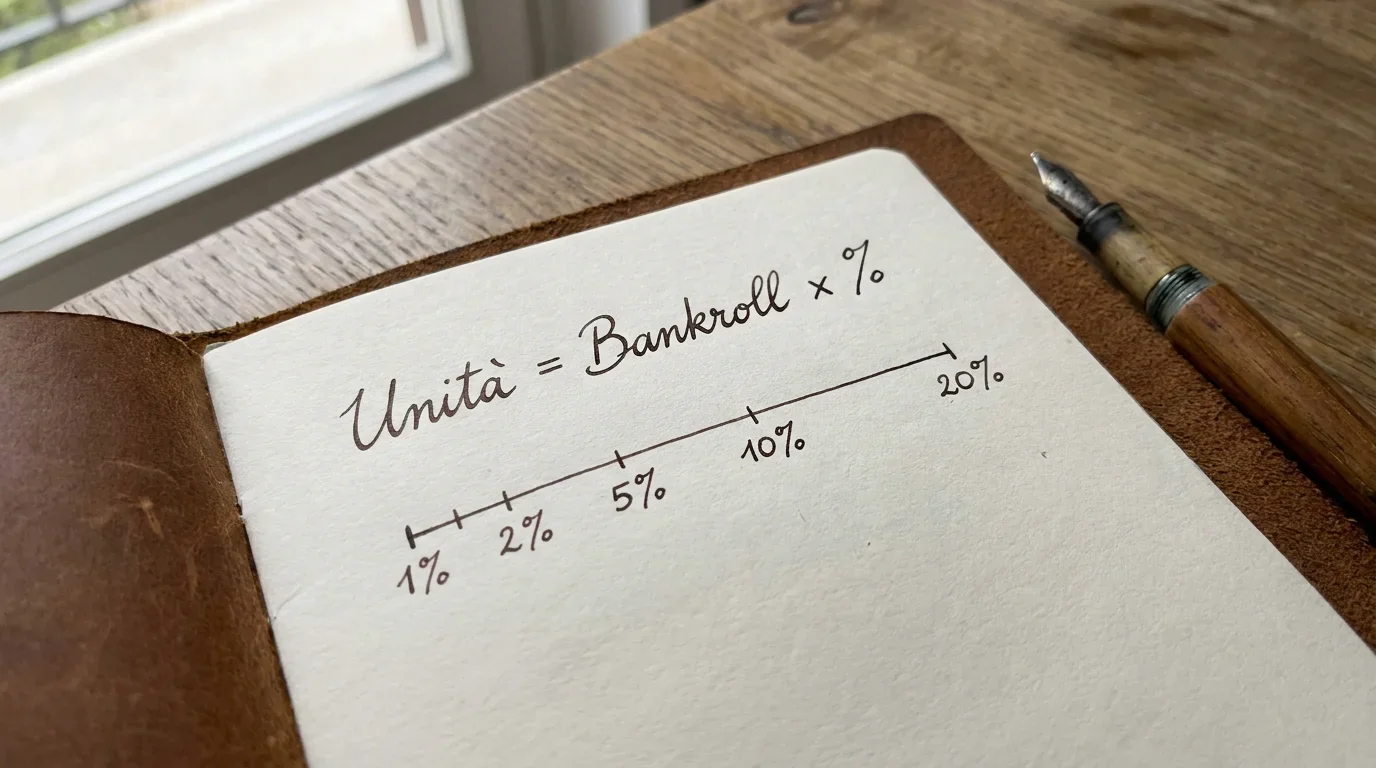 Unità = Bankroll × %
1% 2% 5% 10% 20%